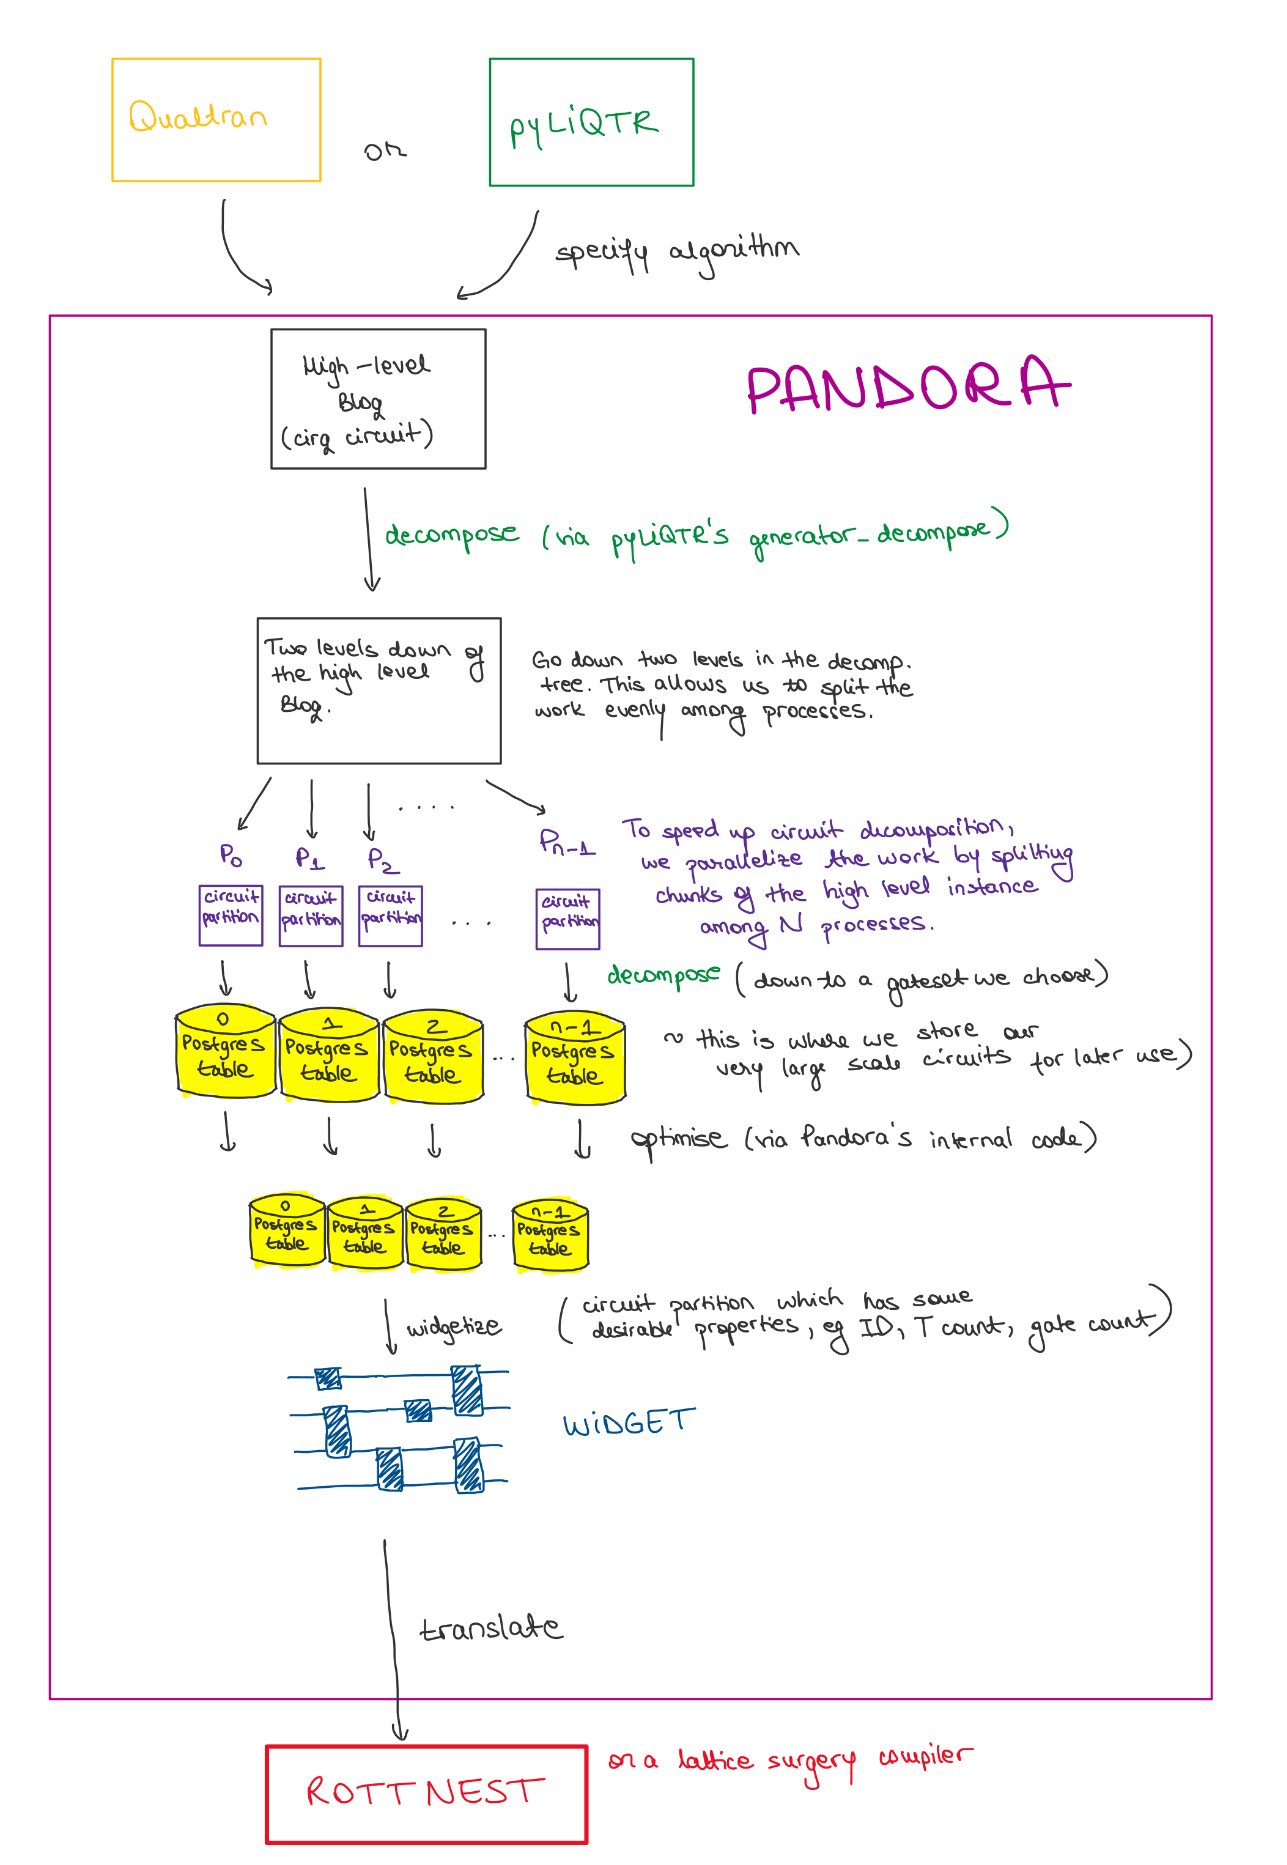 Qualtran
or
pyLiQTR
specify algorithm
PANDORA
High-level
Bloq
(cirq circuit)
decompose (via pyLiQTR's generator_decompose)
Two levels down of
the high level
Bloq.
Go down two levels in the decomp.
tree. This allows us to split the
work evenly among processes.
....
P0
P1
P2
Pn-1
To speed up circuit decomposition,
we parallelize the work by splitting
chunks of the high level instance
among N processes.
circuit
partition
circuit
partition
circuit
partition
....
circuit
partition
decompose (down to a gateset we choose)
0
Postgres
table
1
Postgres
table
2
Postgres
table
...
n-1
Postgres
table
~ this is where we store our
very large scale circuits for later use)
optimise (via Pandora's internal code)
0
Postgres
table
1
Postgres
table
2
Postgres
table
...
n-1
Postgres
table
widgetize
(circuit partition which has some
desirable properties, eg ID, T count, gate count)
WiDGET
translate
ROTTNEST
or a lattice surgery compiler